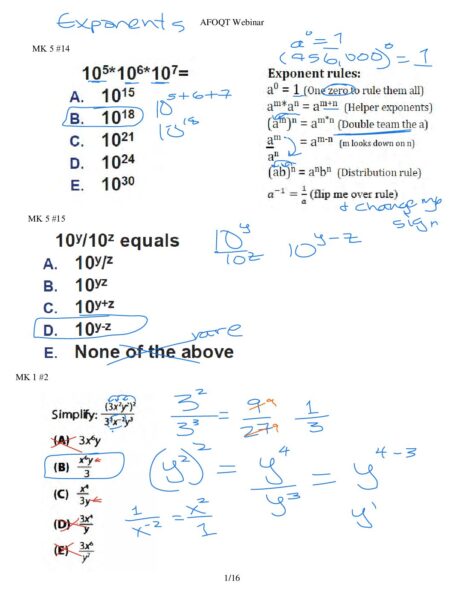 Exponents AFOQT Webinar
a⁰ = 1
(456,000)⁰ = 1
MK 5 #14
10⁵*10⁶*10⁷=
A. 10¹⁵
B. 10¹⁸
C. 10²¹
D. 10²⁴
E. 10³⁰
10⁵⁺⁶⁺⁷
10¹⁸
Exponent rules:
a⁰ = 1 (One zero to rule them all)
aᵐ*aⁿ = aᵐ⁺ⁿ (Helper exponents)
(aᵐ)ⁿ = aᵐ*ⁿ (Double team the a)
aᵐ/aⁿ = aᵐ⁻ⁿ (m looks down on n)
(ab)ⁿ = aⁿbⁿ (Distribution rule)
a⁻¹ = 1/a (flip me over rule)
& change my
sign
MK 5 #15
10ʸ/10ᶻ equals
A. 10ʸ/ᶻ
B. 10ʸᶻ
C. 10ʸ⁺ᶻ
D. 10ʸ⁻ᶻ
E. None of the above
rare
10ʸ/10ᶻ 10ʸ⁻ᶻ
MK 1 #2
Simplify: (3x²y²)²/3³x⁻²y³
(A) 3x⁶y
(B) x⁶y/3
(C) x⁴/3y
(D) 3x⁴/y
(E) 3x⁶/y²
3²/3³ = 9/27 1/3
(y²)² = y⁴/y³ = y⁴⁻³
y¹
1/x⁻² = x²/1
1/16